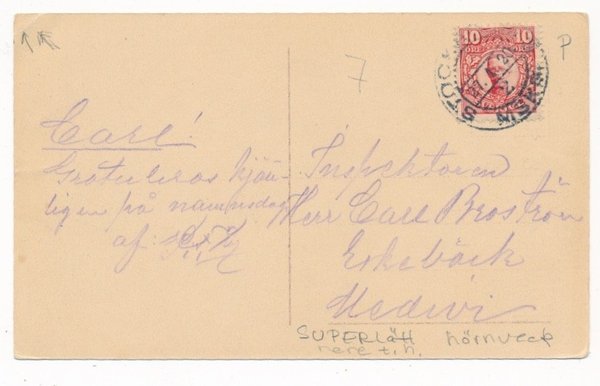 P
7
10 10
ÖRE
STOCK
Carl!
Gratuleras hjärt-
ligen på namnsdag
af
Inspektoren
Herr Carl Broström
Erkebäck
Medevi
SUPERLÄTT hörnveck
nere t.h.